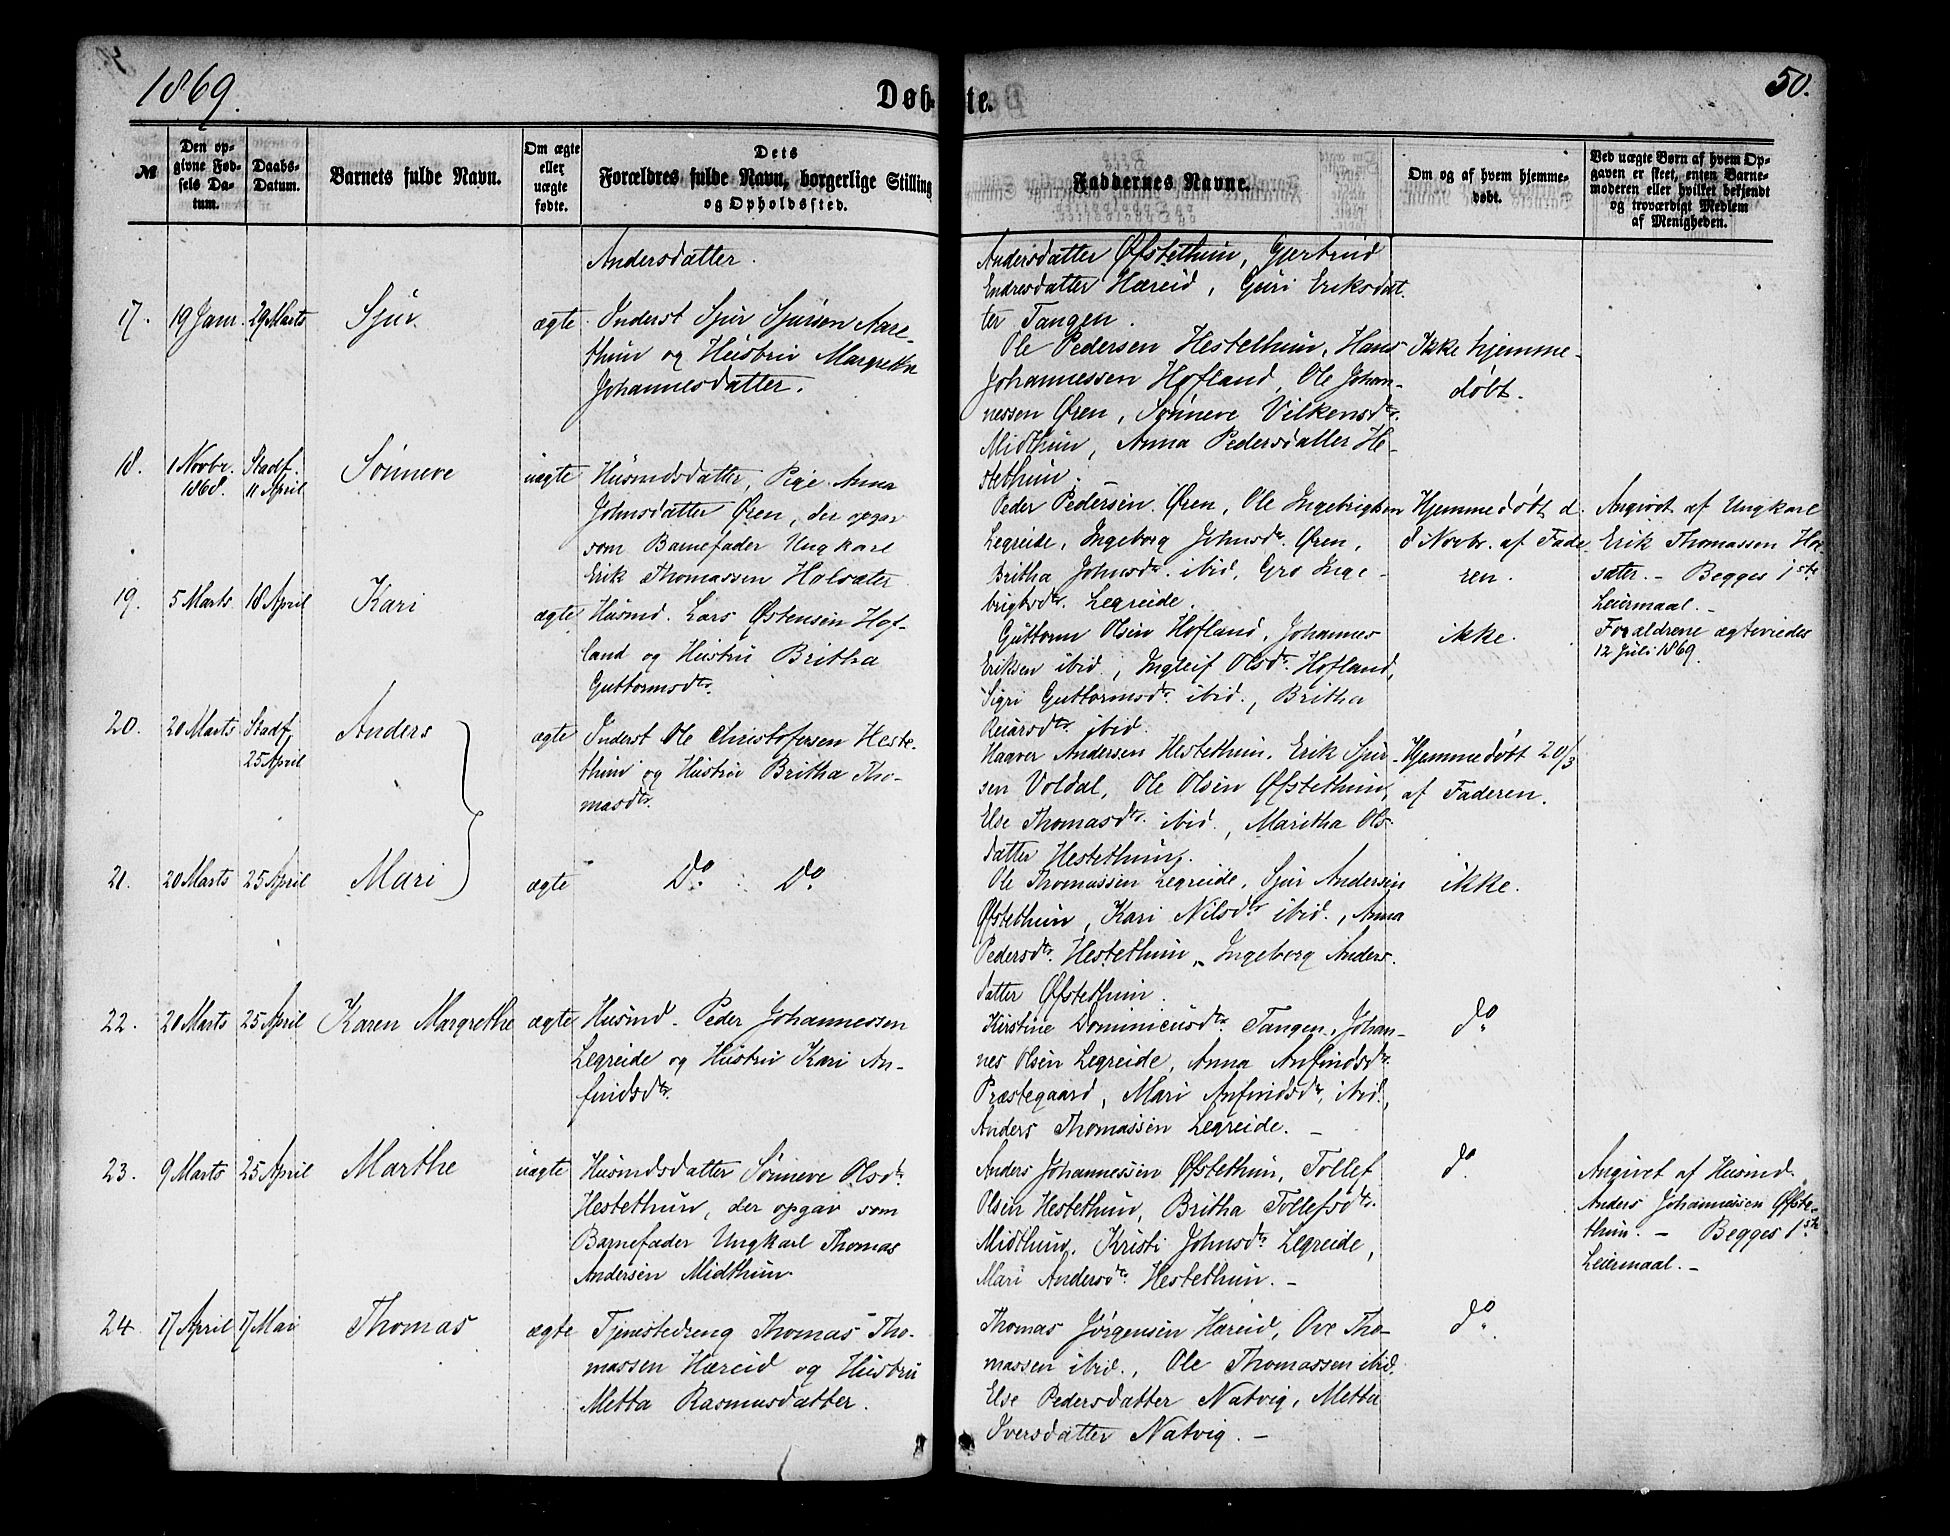 1869.
Døbte.
50.
№
Den opgivne Fødsels Datum.
Daabs-Datum.
Barnets fulde Navn.
Om ægte eller uægte fødte.
Dets Forældres fulde Navn, borgerlige Stilling og Opholdssted.
Faddernes Navne.
Om og af hvem hjemmedøbt.
Ved uægte Børn af hvem Opgaven er skeet, enten Barnemoderen eller hvilket bekjendt og troværdigt Medlem af Menigheden.
Andersdatter.
Andersdatter Øfstethun, Gjertrud
Endresdatter Hæreid, Guri Eriksdat-
ter Tangen.
17.
19 Janr.
29 Marts
Sjur.
ægte
Inderst Sjur Sjursen Aare-
thun og Hustru Margrethe
Johannesdatter.
Ole Pedersen Hestethun, Hans
Johannessen Hofland, Ole Johan-
nessen Øren, Sønneve Vilkensdtr.
Midthun, Anna Pedersdatter He-
stethun.
Ikke hjemme-
døbt.
18.
1 Novbr.
1868.
Stadf.
11 April
Sønneve
uægte
Husmdsdatter, Pige Anna
Johnsdatter Øren, der opgav
som Barnefader Ungkarl
Erik Thomassen Holsæter
Peder Pedersen Øren, Ole Ingebrigtsen
Legreide, Ingeborg Johnsdtr. Øren,
Britha Johnsdtr. ibid, Gro Inge-
brigtsdtr. Legreide.
Hjemmedøbt d.
8 Novbr. af Fade-
ren.
Angivet af Ungkarl
Erik Thomassen Hol-
sæter. - Begges 1ste
Leiermaal. -
Forældrene ægteviede
12 Juli 1869.
19.
5 Marts
18 April
Kari
ægte
Husmd. Lars Østensen Hof-
land og Hustru Britha
Guttormsdtr.
Guttorm Olsen Hofland, Johannes
Eriksen ibid., Ingleif Olsdtr. Hofland,
Sigri Guttormsdtr. ibid., Britha
Reiarsdtr. ibid.
ikke.
20.
20 Marts
Stadf.
25 April
Anders
ægte
Inderst Ole Christofersen Heste-
thun og Hustru Britha Tho-
masdtr.
Haaver Andersen Hestethun, Erik Sjur-
sen Voldal, Ole Olsen Øfstethun,
Else Thomasdtr. ibid., Maritha Ols-
datter Hestethun.
Hjemmedøbt 20/3
af Faderen.
21.
20 Marts
25 April
Mari
ægte
Do. Do.
Ole Thomassen Legreide, Sjur Andersen
Øfstethun, Kari Nilsdtr. ibid., Anna
Pedersdtr. Hestethun, Ingeborg Anders-
datter Øfstethun.
ikke.
22.
20 Marts
25 April
Karen Margrethe
ægte
Husmd. Peder Johannessen
Legreide og Hustru Kari An-
findsdtr.
Kirstine Dominicusdtr. Tangen, Johan-
nes Olsen Legreide, Anna Anfindsdtr.
Præstegaard, Mari Anfindsdtr. ibid.,
Anders Thomassen Legreide. -
do
23.
9 Marts
25 April
Marthe
uægte
Husmdsdatter Sønneve Olsdtr.
Hestethun, der opgav som
Barnefader Ungkarl Thomas
Andersen Midthun.
Anders Johannessen Øfstethun, Tollef
Olsen Hestethun, Britha Tollefsdtr.
Midthun, Kristi Johnsdtr. Legreide,
Mari Andersdtr. Hestethun. -
do.
Angivet af Husmd.
Anders Johannessen Øfste-
thun. - Begges 1ste
Leiermaal. -
24.
17 April
17 Mai
Thomas
ægte
Tjenestedreng Thomas Tho-
massen Hæreid og Hustru
Metta Rasmusdatter.
Thomas Jørgensen Hæreid, Ove Tho-
massen ibid., Ole Thomassen ibid.
Else Pedersdatter Natvig, Metta
Iversdatter Natvig. -
do.